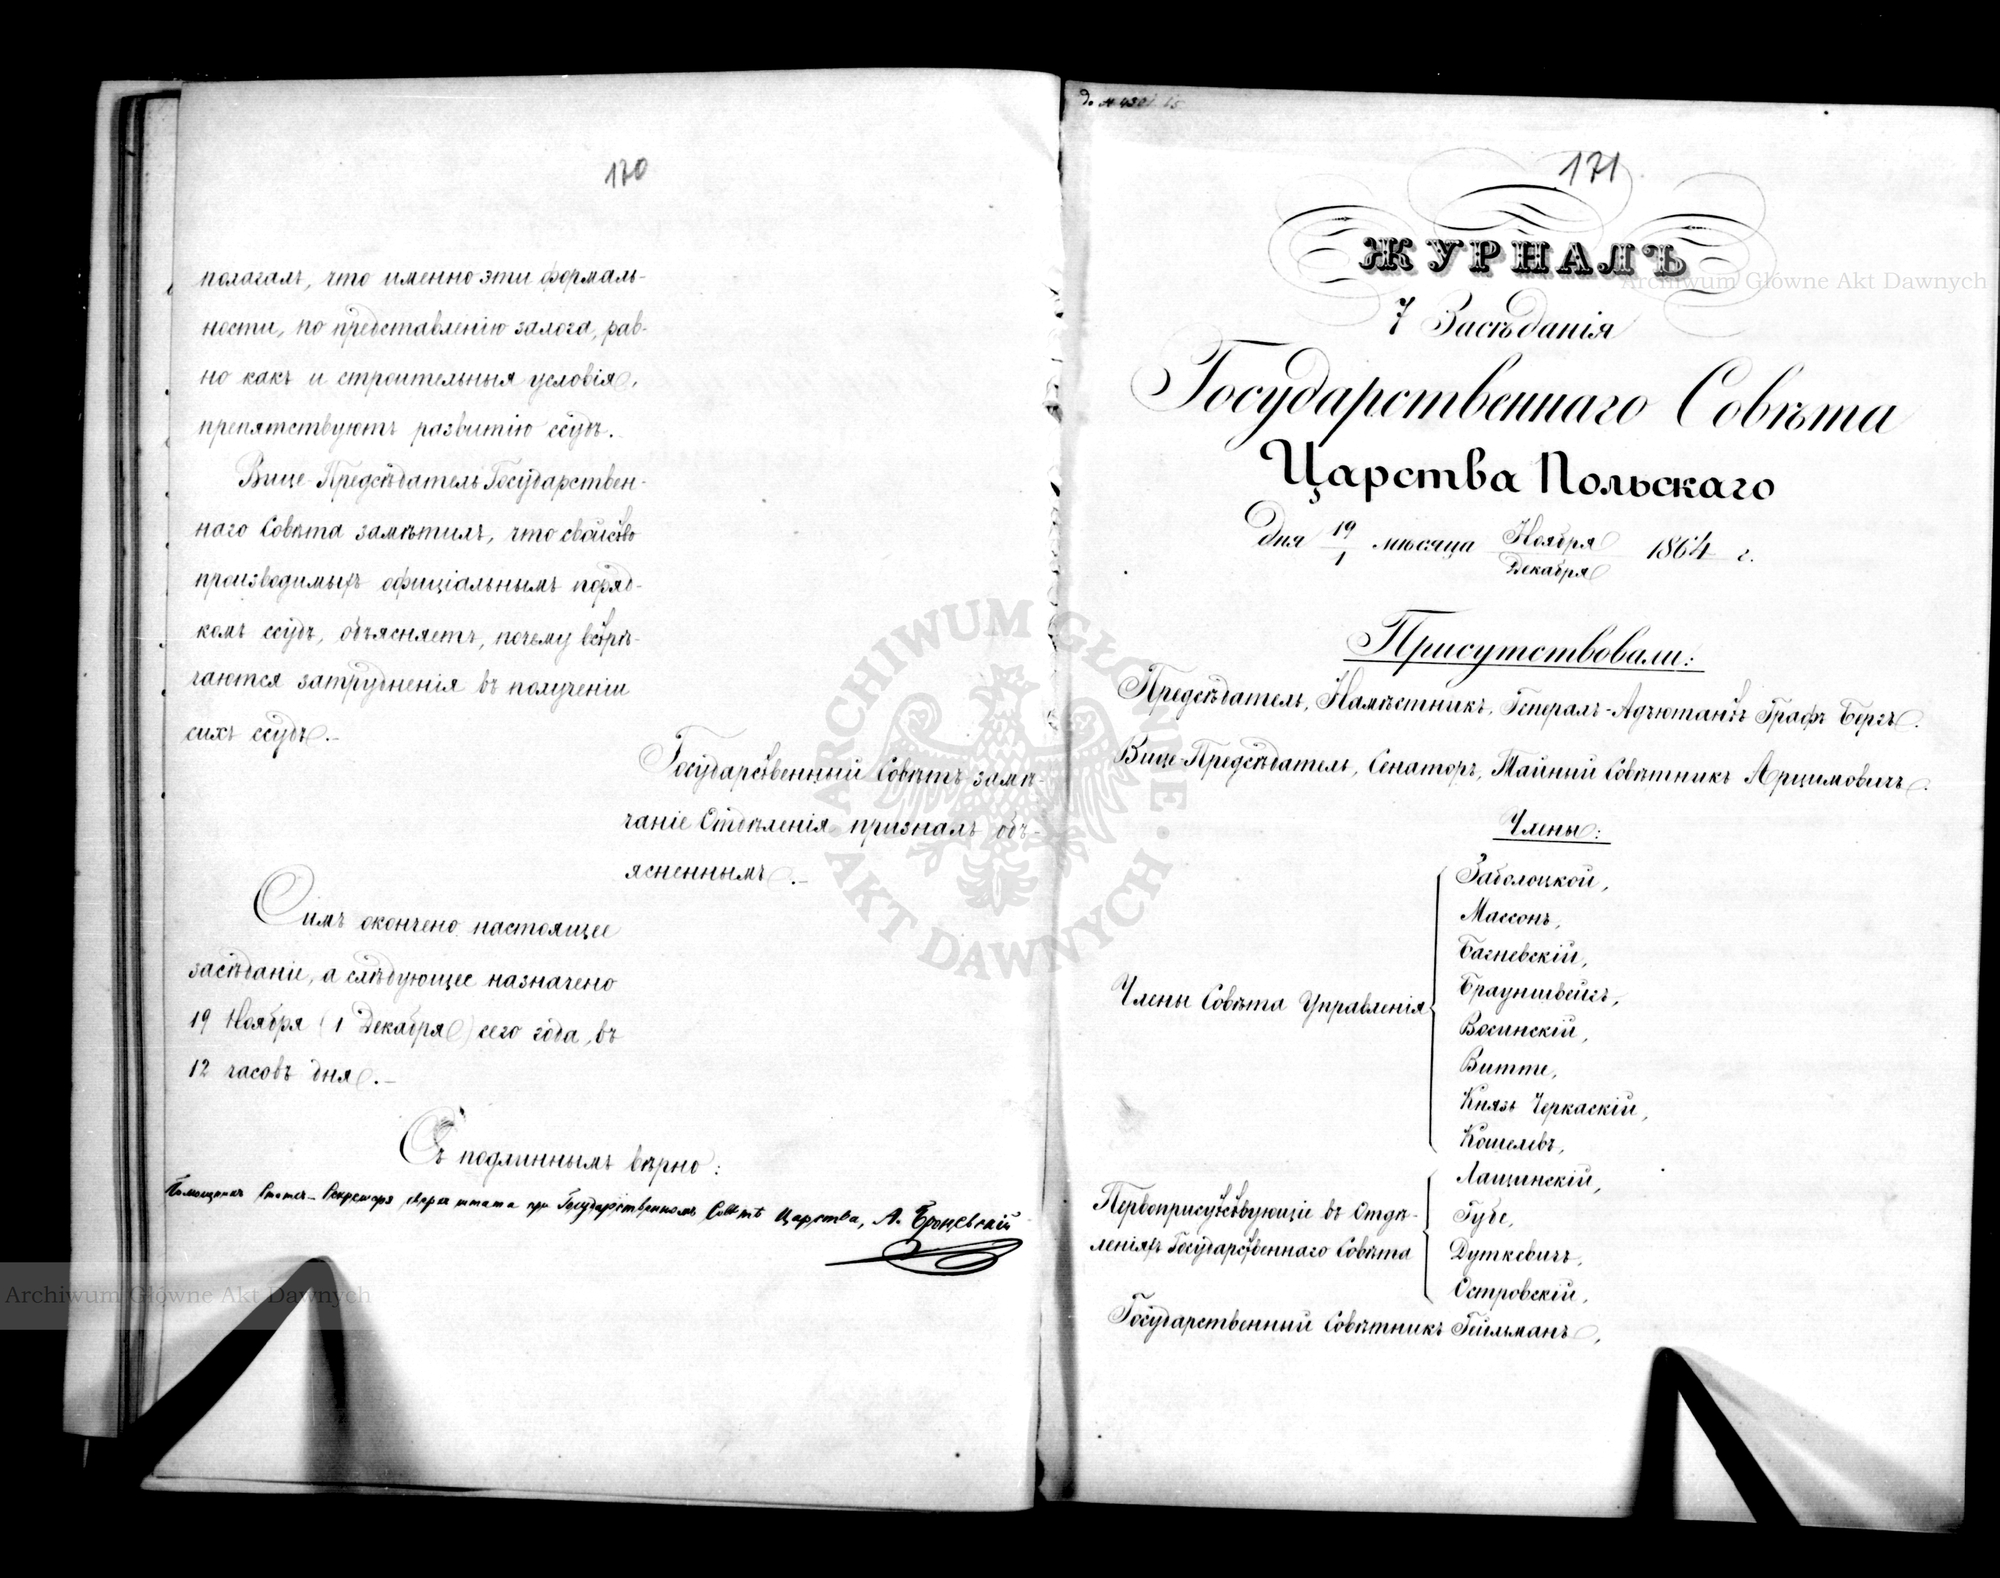 170
полагалъ, что именно эти формаль-
ности, по представленію залога, рав-
но какъ и строительныя условія,
препятствуютъ развитію ссудъ.
Вице-Предсѣдатель Государствен-
наго Совѣта замѣтилъ, что свойство
производимыхъ офиціальнымъ поряд-
комъ ссудъ, объясняетъ, почему встрѣ-
чаются затрудненія въ полученіи
сихъ ссудъ.-
Государственный Совѣтъ замѣ-
чаніе Отдѣленія призналъ объ-
ясненнымъ.-
Симъ окончено настоящее
засѣданіе, а слѣдующее назначено
19 Ноября (1 Декабря) сего года, въ
12 часовъ дня.-
Съ подлиннымъ вѣрно:
Помощникъ Статсъ-Секретаря, сверхъ штата при Государственномъ Совѣтѣ Царства, А. Броневскій
171
ЖУРНАЛЪ
7 Засѣданія
Государственнаго Совѣта
Царства Польскаго
Дня 19/1 мѣсяца Ноября/Декабря 1864 г.
Присутствовали:
Предсѣдатель, Намѣстникъ, Генералъ-Адъютантъ Графъ Бергъ.
Вице-Предсѣдатель, Сенаторъ, Тайный Совѣтникъ Арцимовичъ.
Члены:
Члены Совѣта Управленія
Заболоцкой,
Массонъ,
Багневскій,
Брауншвейгъ,
Восинскій,
Витте,
Князь Черкаскій,
Кошелевъ,
Первоприсутствующіе въ Отдѣ-
леніяхъ Государственнаго Совѣта
Лащинскій,
Губе,
Дуткевичъ,
Островскій,
Государственный Совѣтникъ Гейльманъ,
Archiwum Główne Akt Dawnych
ARCHIWUM GŁÓWNE AKT DAWNYCH
Archiwum Główne Akt Dawnych